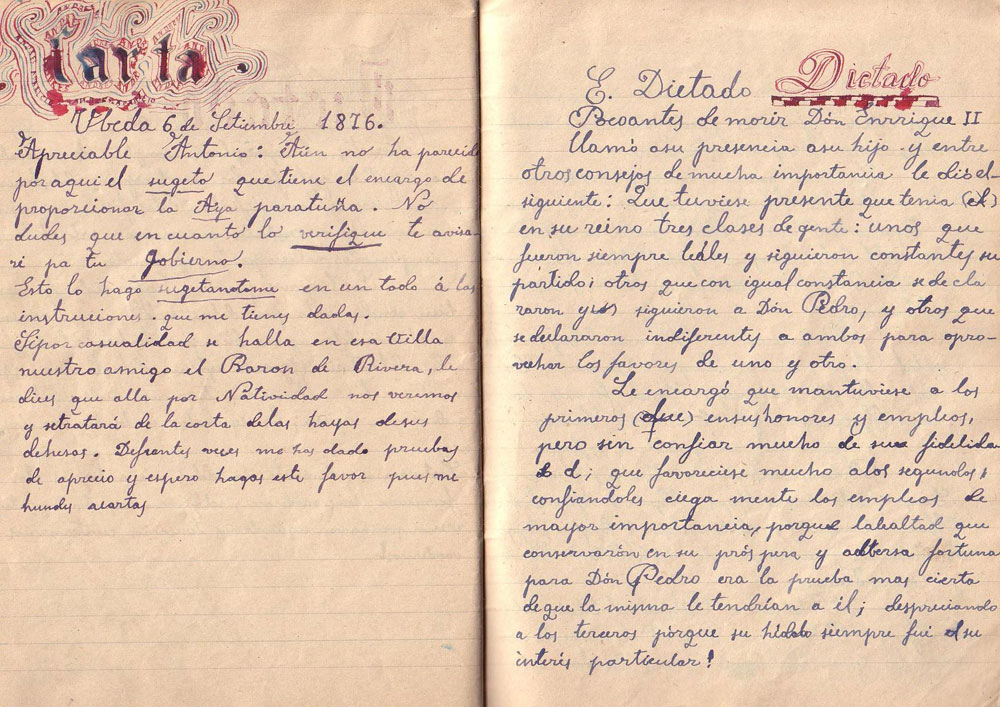 Carta
Ubeda 6 de Setiembre 1876.
Apreciable Antonio: Aún no ha parecido
por aqui el sugeto que tiene el encargo de
proporcionar la Aya paratuña. No
dudes que en cuanto lo verifique te avisa-
ri pa tu gobierno.
Esto lo hago sugetandome en un todo á las
instruciones. que me tienes dadas.
Sipor casualidad se halla en esa Villa
nuestro amigo el Baron de Rivera, le
dices que alla por Natividad nos veremos
y setratará de la corta delas hayas desus
dehesas. Defrentes veces me has dado pruebas
de aprecio y espero hagas este favor pues me
hundes acartas
E. Dictado Dictado
Pocoantes de morir Dón Enrrique II
llamó asu presencia asu hijo y entre
otros consejos de mucha importancia le dis el-
siguiente: Que tuviese presente que tenia (el)
en su reino tres clases de gente: unos que
fueron siempre leáles y siguieron constantes su
partido; otros que con igual constancia se decla
raron y siguieron a Dón Pedro, y otros que
se declararon indiferentes a ambos para apro-
vechar los favores de uno y otro.
Le encargó que mantuviese a los
primeros (que) ensus honores y empleos,
pero sin confiar mucho de su fidelida
d; que favoreciese mucho alos segundos,
confiandoles ciega mente los empleos de
mayor importancia, porque lalealtad que
conservarón en su próspera y adbersa fortuna
para Dón Pedro era la prueba mas cierta
deque la misma le tendrían a él; despreciando
a los terceros pórque su hidolo siempre fué su
interés particular!